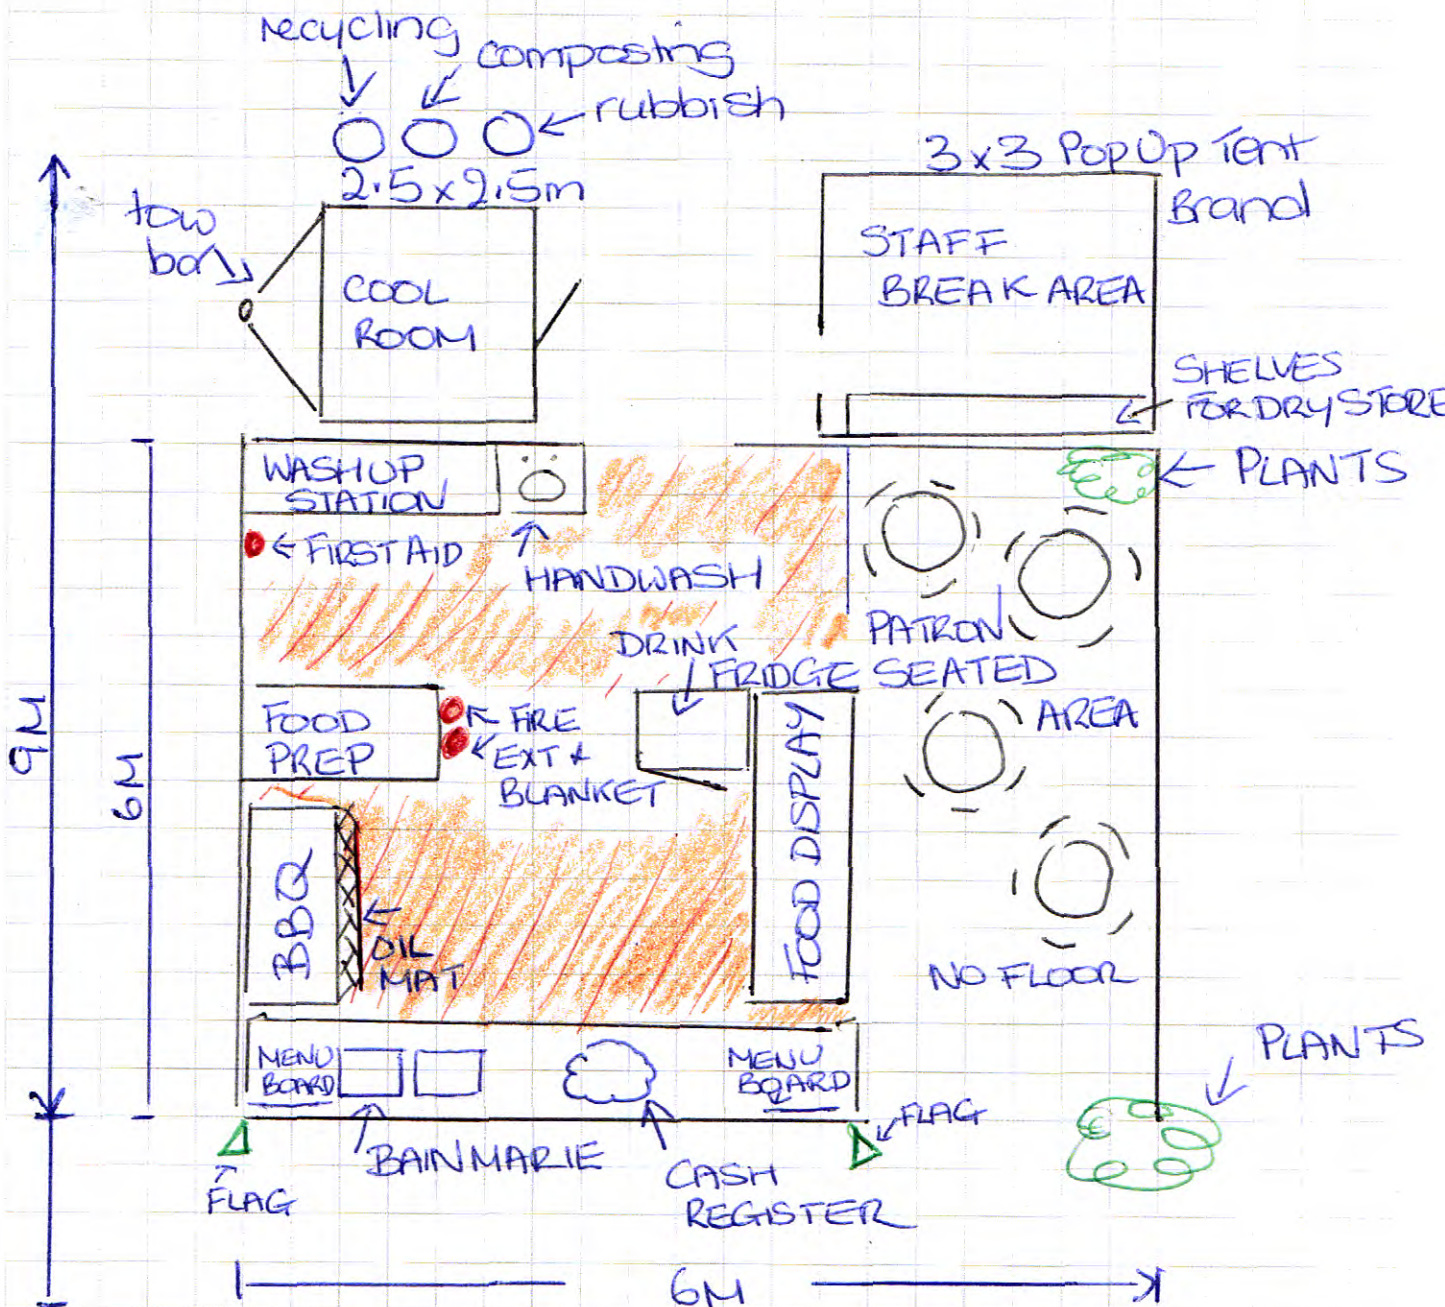 recycling
composting
rubbish
2.5 x 2.5m
3x3 Pop Up Tent
Brand
tow
bar
COOL
ROOM
STAFF
BREAK AREA
SHELVES
FOR DRY STORE
WASHUP
STATION
PLANTS
FIRST AID
HANDWASH
PATRON
SEATED
AREA
DRINK
FRIDGE
FOOD
PREP
FIRE
EXT &
BLANKET
FOOD DISPLAY
9M
6M
BBQ
OIL
MAT
NO FLOOR
MENU
BOARD
MENU
BOARD
PLANTS
FLAG
BAINMARIE
CASH
REGISTER
FLAG
6M